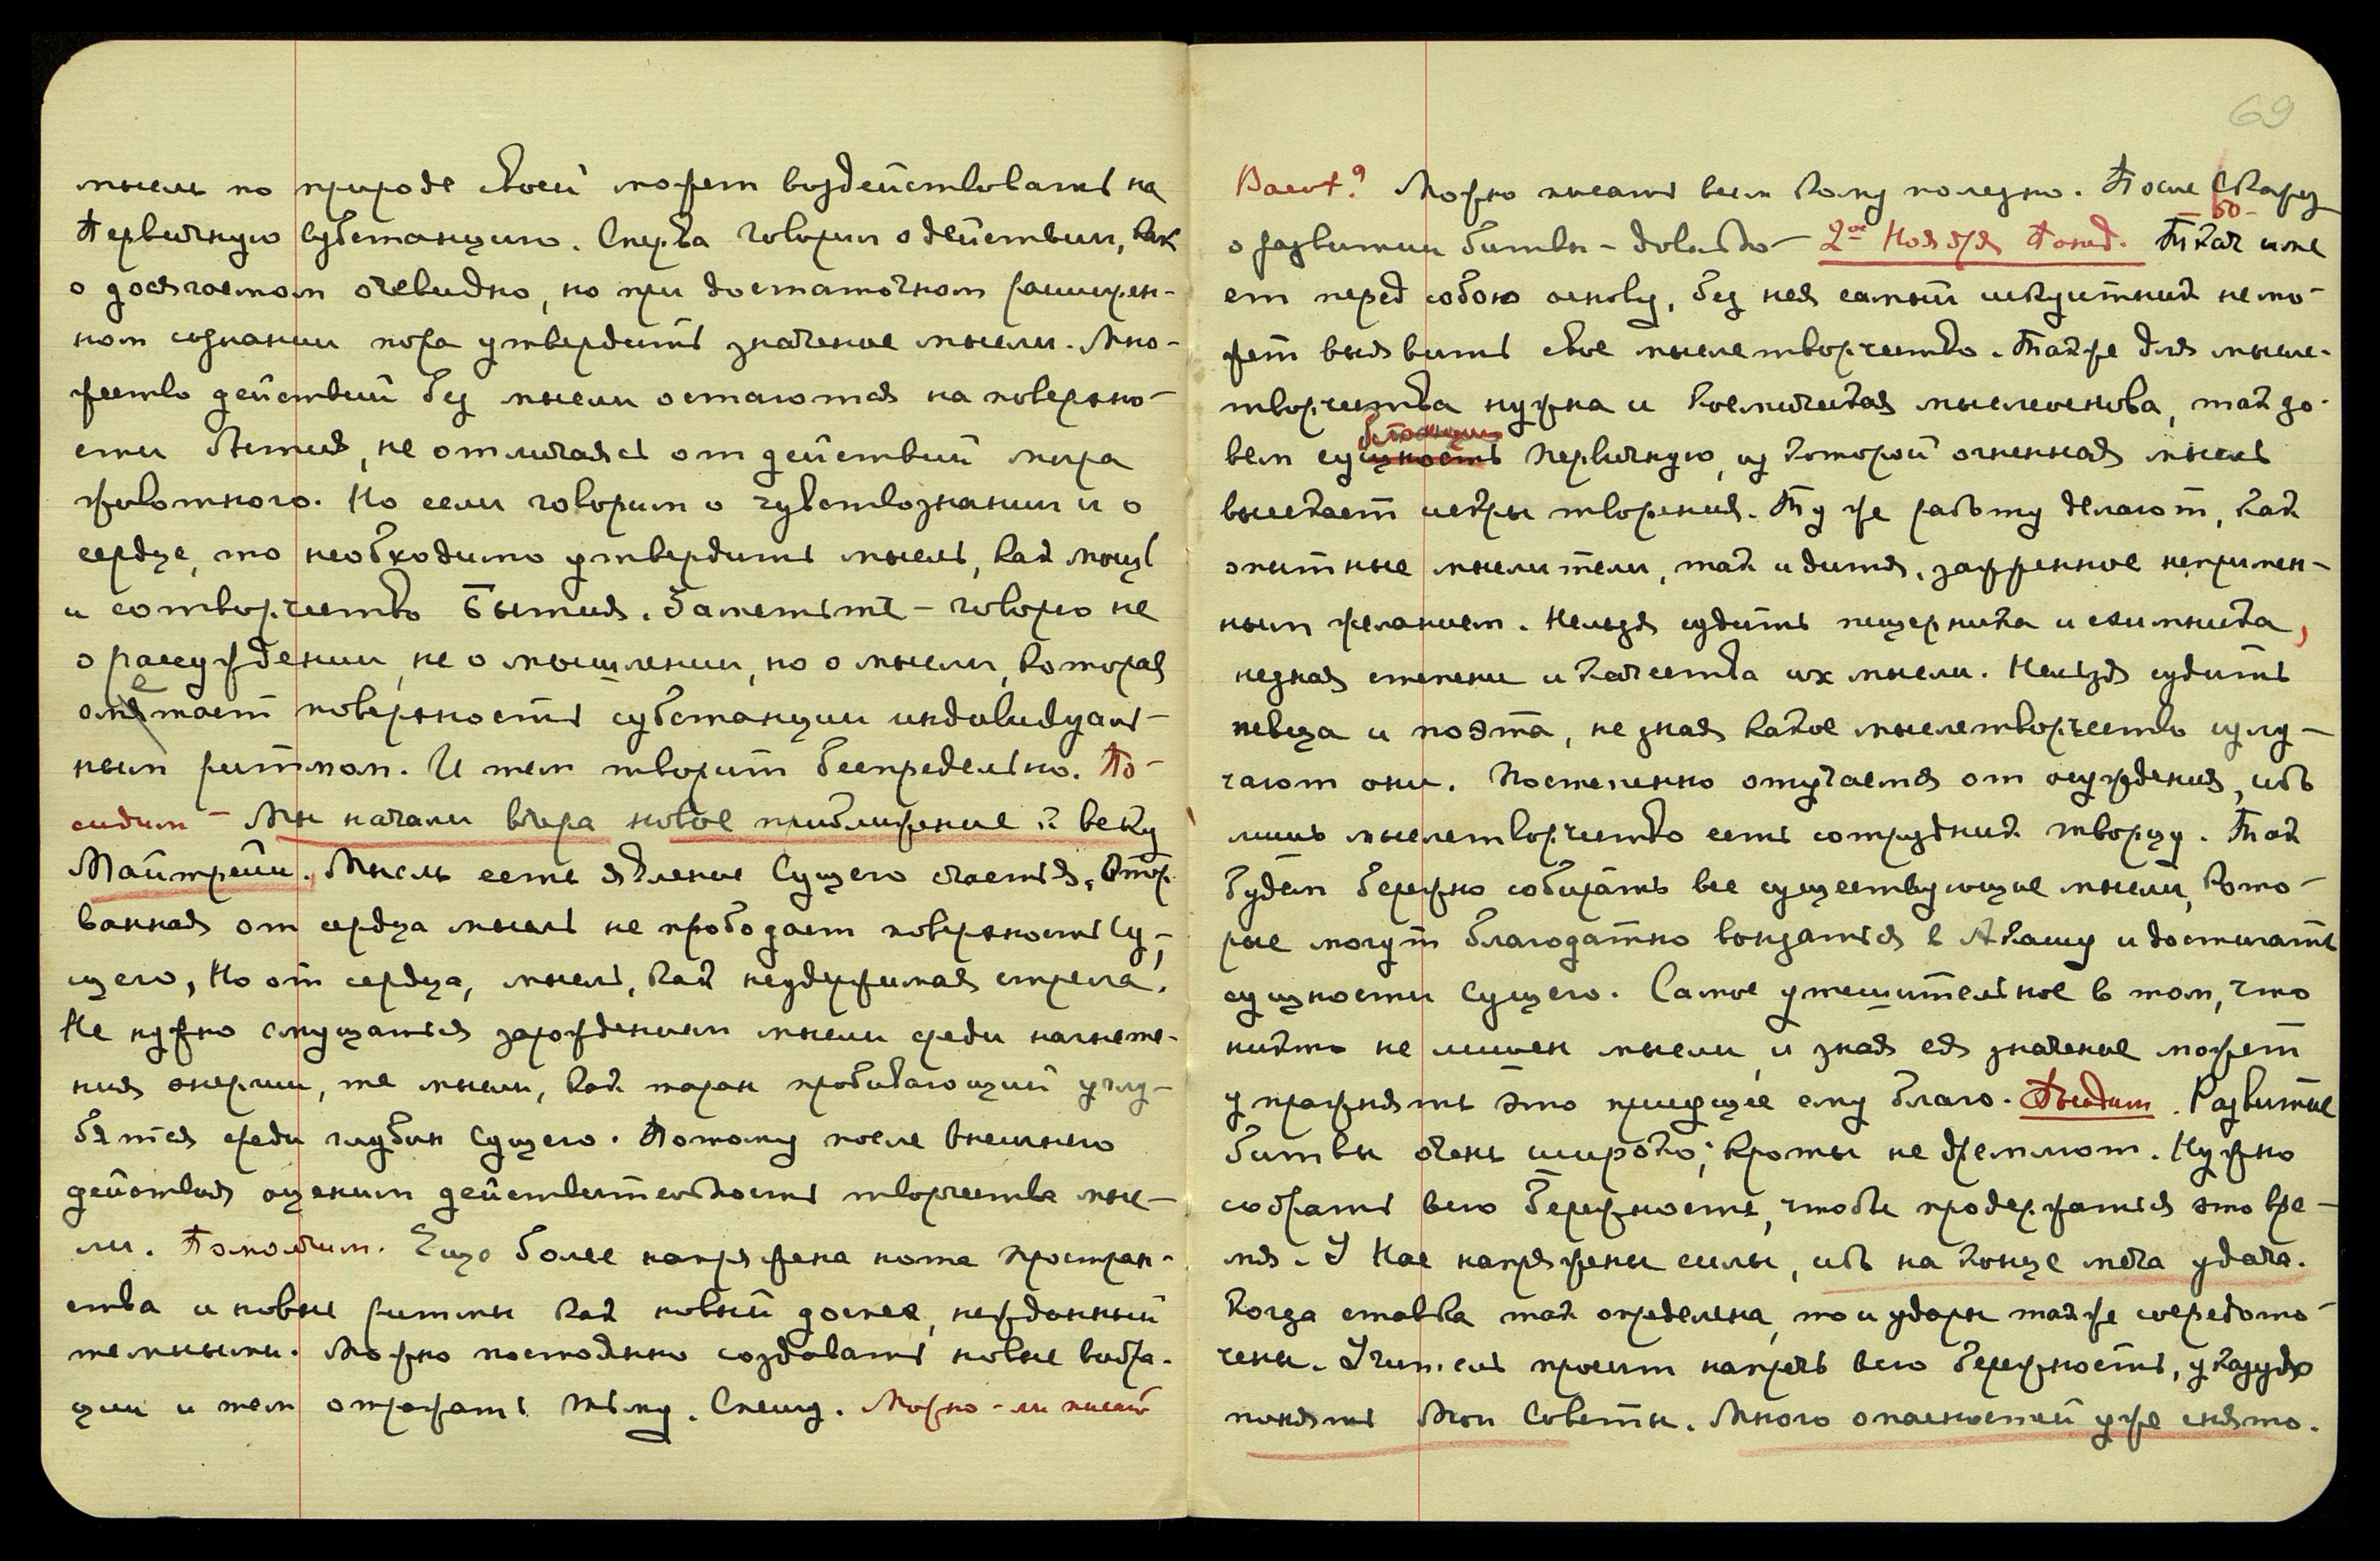 мысль по природе своей может воздействовать на
Первичную субстанцию. Сперва говорим о действии, как
о досягаемом очевидно, но при достаточном расширен-
ном сознании пора утвердить значение мысли. Мно-
жество действий без мысли остаются на поверхно-
сти бытия, не отличаясь от действий мира
животного. Но если говорим о чувствознании и о
сердце, то необходимо утвердить мысль, как мощь
и сотворчество Бытия. Заметьте – говорю не
о рассуждении, не о мышлении, но о мысли, которая
е
омтает поверхность субстанции индивидуаль-
ным ритмом. И тем творит беспредельно. По-
сидим – Мы начали вчера новое приближение к веку
Майтрейи. Мысль есть явление Сущего счастья. Отор-
ванная от сердца мысль не прободает поверхность Су-
щего, Но от сердца, мысль, как неудержимая стрела.
Не нужно смущаться зарождением мысли среди нагнете-
ния энергии, те мысли, как таран пробивающий углу-
бятся среди глубин Сущего. Потому после внешнего
действия оценим действительность творчества мыс-
ли. Помолчим. Еще более напряжена нота Простран-
ства и новые ритмы как новый доспех, нежданный
темными. Можно постоянно создавать новые вибра-
ции и тем отражать тьму. Спешу. Можно-ли писать
69
Вает? Можно писать всем кому полезно. После Скажу
о развитии битвы – довольно – 2ое Ноября Понед. Ткач име
ет перед собою основу, без нея самый искусный ткач не мо-
жет выявить свое мыслетворчество. Также для мысле-
творчества нужна и Космическая мыслеоснова, так зо-
бстанцию
вем сущность Первичную, из которой огненная мысль
высекает искры творения. Ту же работу делают, как
опытные мыслители, так и дитя, заженное непримен-
ным желанием. Нельзя судить пещерника и схимника,
не зная степени и качества их мысли. Нельзя судить
певца и поэта, не зная какое мыслетворчество излу-
чают они. Постепенно отучаемся от осуждения, ибо
лишь мыслетворчество есть сотрудник творцу. Так
будем бережно собирать все существующие мысли, кото-
рые могут благодатно вонзаться в Акашу и достигать
сущности Сущего. Самое утешительное в том, что
никто не лишен мысли и зная ея значение может
упражнять это присущее ему благо. Посидим. Развитие
битвы очень широко; Кроты не дремлют. Нужно
собрать всю бережность, чтобы продержаться это вре-
мя. У Нас напряжены силы, ибо на конце меча удача.
Когда ставка так определена, то и удары также сосредото-
чены. Учитель просит напрячь всю бережность,
понять Мои Советы. Много опасностей уже снято.